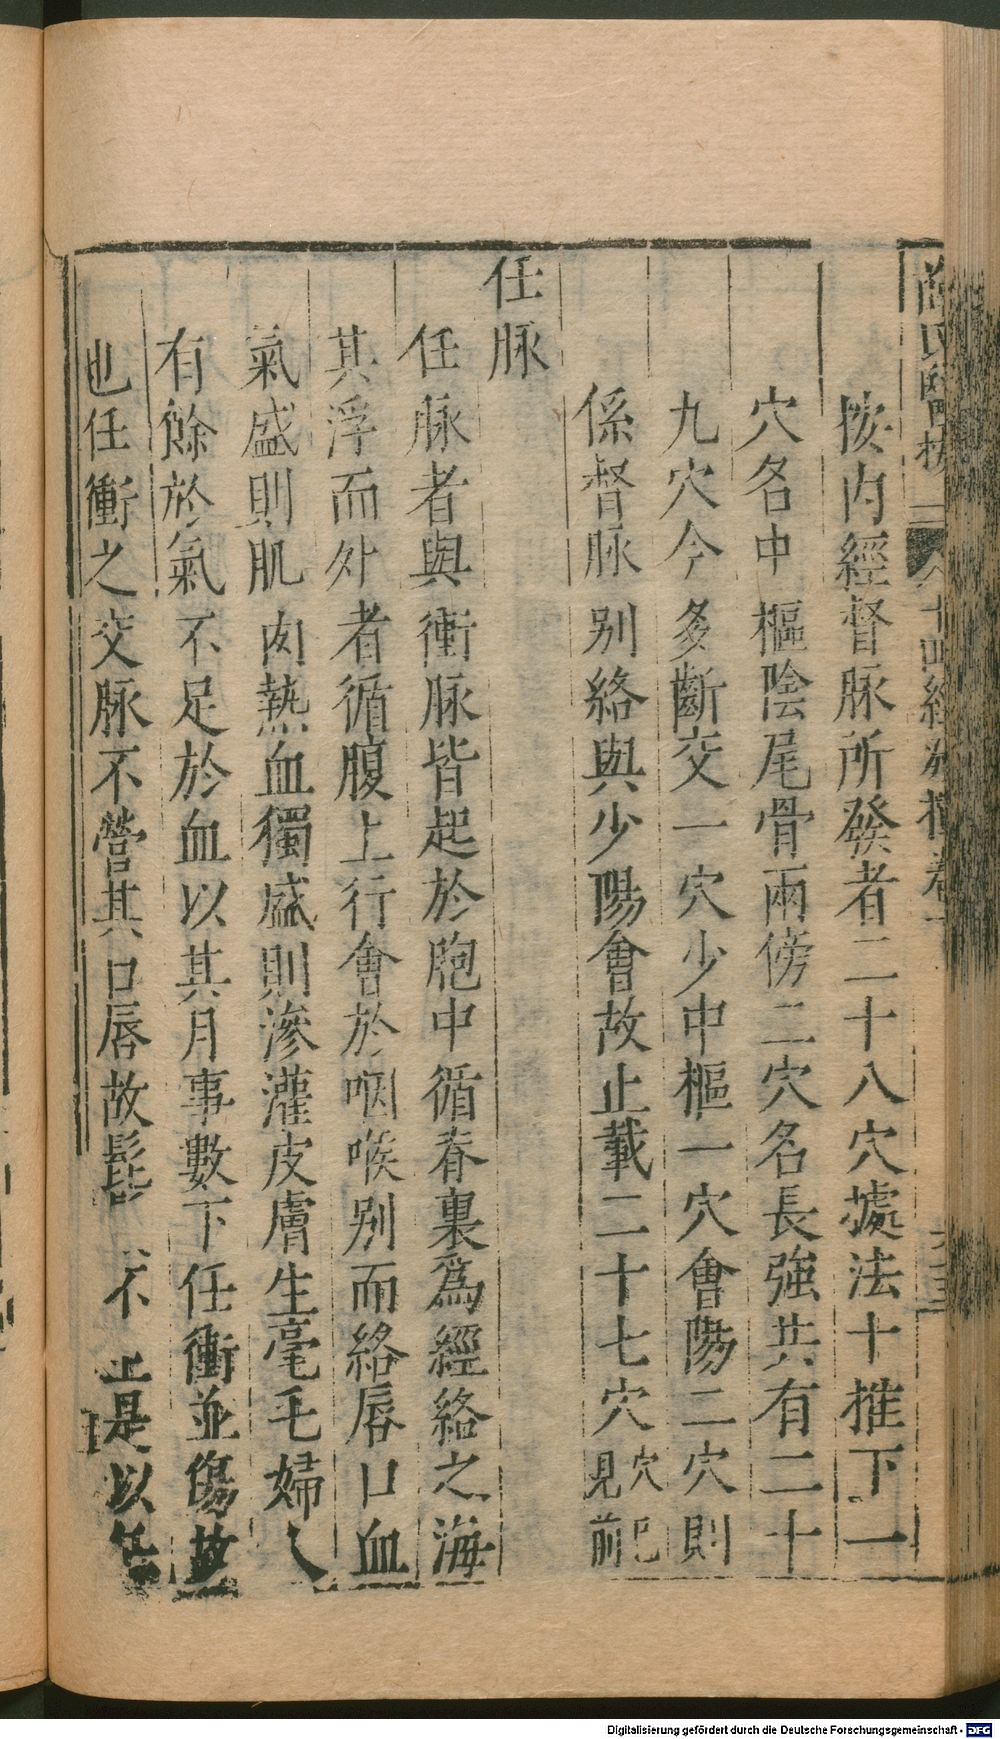 薛氏醫按 二 十四經發揮卷 六三
按內經督脉所發者二十八穴據法十推下一
穴名中樞陰尾骨兩傍二穴名長強共有二十
九穴今多斷交一穴少中樞一穴會陽二穴則
係督脉别絡與少陽會故止載二十七穴穴已見前
任脉
任脉者與衝脉皆起於胞中循脊裏爲經絡之海
其浮而外者循腹上行會於咽喉别而絡唇口血
氣盛則肌肉熱血獨盛則滲灌皮膚生毫毛婦人
有餘於氣不足於血以其月事數下任衝並傷故
也任衝之交脉不營其口唇故髭 不 是以任
Digitalisierung gefördert durch die Deutsche Forschungsgemeinschaft - DFG